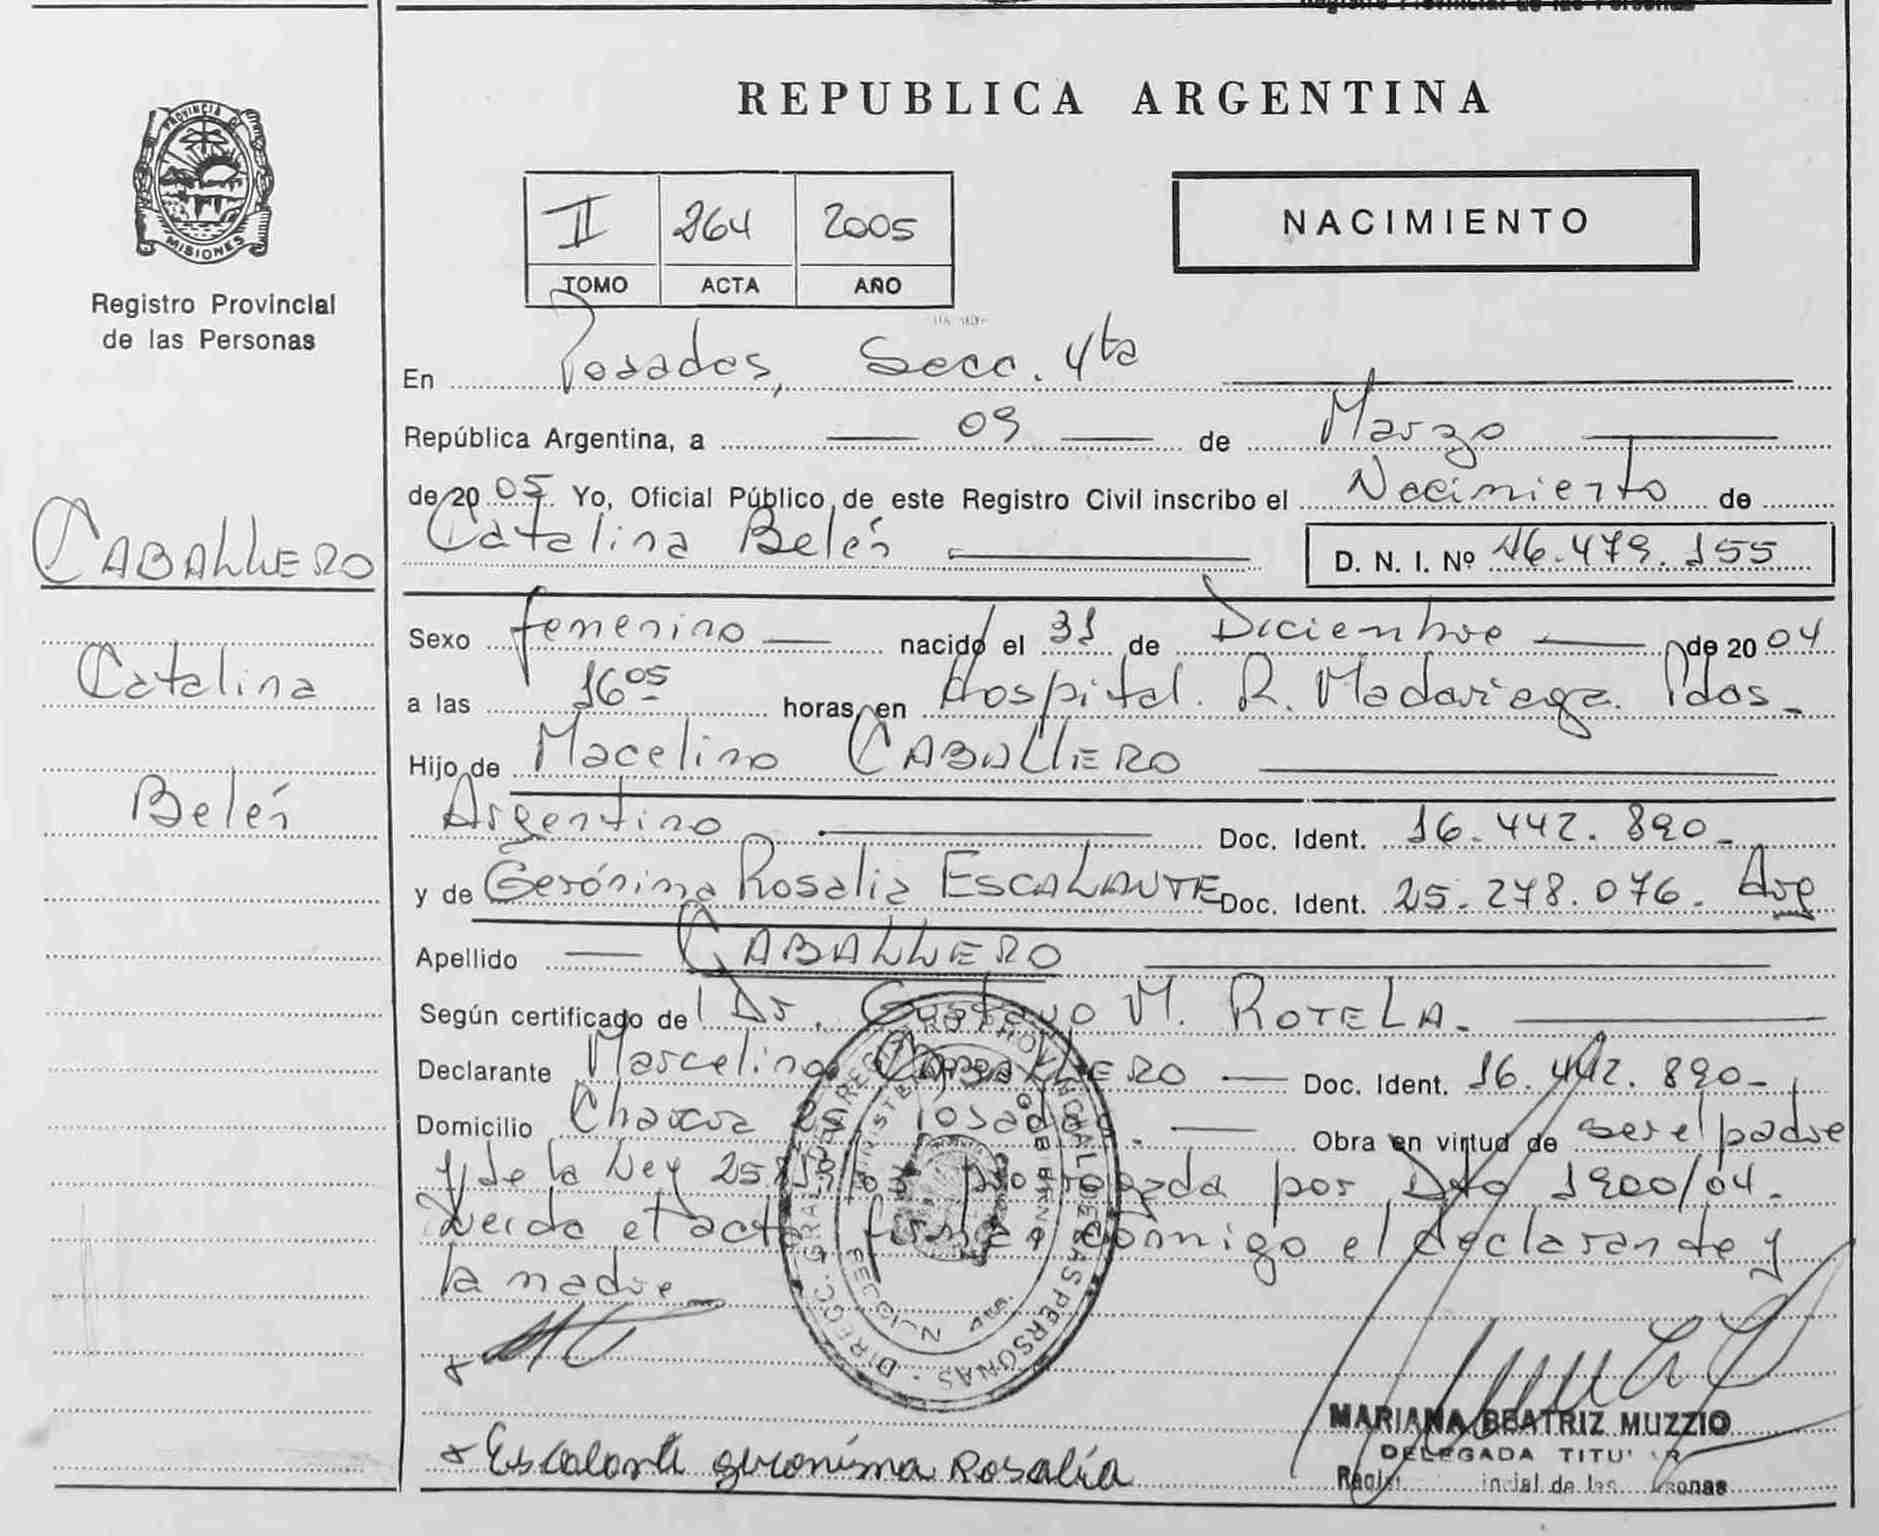 Registro Provincial de las Personas
PROVINCIA DE
MISIONES
Registro Provincial
de las Personas
CABALLERO
Catalina
Belén
REPUBLICA ARGENTINA
II 264 2005
TOMO ACTA AÑO
NACIMIENTO
En Posadas, Secc. 4ta
República Argentina, a 09 de Marzo
de 2005 Yo, Oficial Público de este Registro Civil inscribo el Nacimiento de
Catalina Belén D. N. I. Nº 46.479.155
Sexo femenino nacido el 31 de Diciembre de 2004
a las 16 05 horas, en Hospital. R. Madariaga. Pdas-
Hijo de Macelino CABALLERO
Argentino Doc. Ident. 16.442.890-
y de Gerónima Rosalia ESCALANTE Doc. Ident. 25.278.076. Arg
Apellido CABALLERO
Según certificado del Dr. Gustavo M. ROTELA.
Declarante Marcelino CABALLERO Doc. Ident. 16.442.890-
Domicilio Chacra Posadas. Obra en virtud de ser el padre
y de la Ley prorrogada por Dto 1900/04.
Leida el acta firman conmigo el declarante y
la madre
DIRECC. GRAL. DEL REGISTRO PROVINCIAL DE LAS PERSONAS
MINISTERIO DE GOBIERNO
x Escalante geronima Rosalía
MARIANA BEATRIZ MUZZIO
DELEGADA
de las